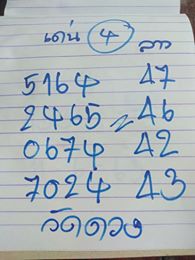 เด่น 4 ลาว
5164 47
2465 = 46
0674 42
7024 43
วัดดวง